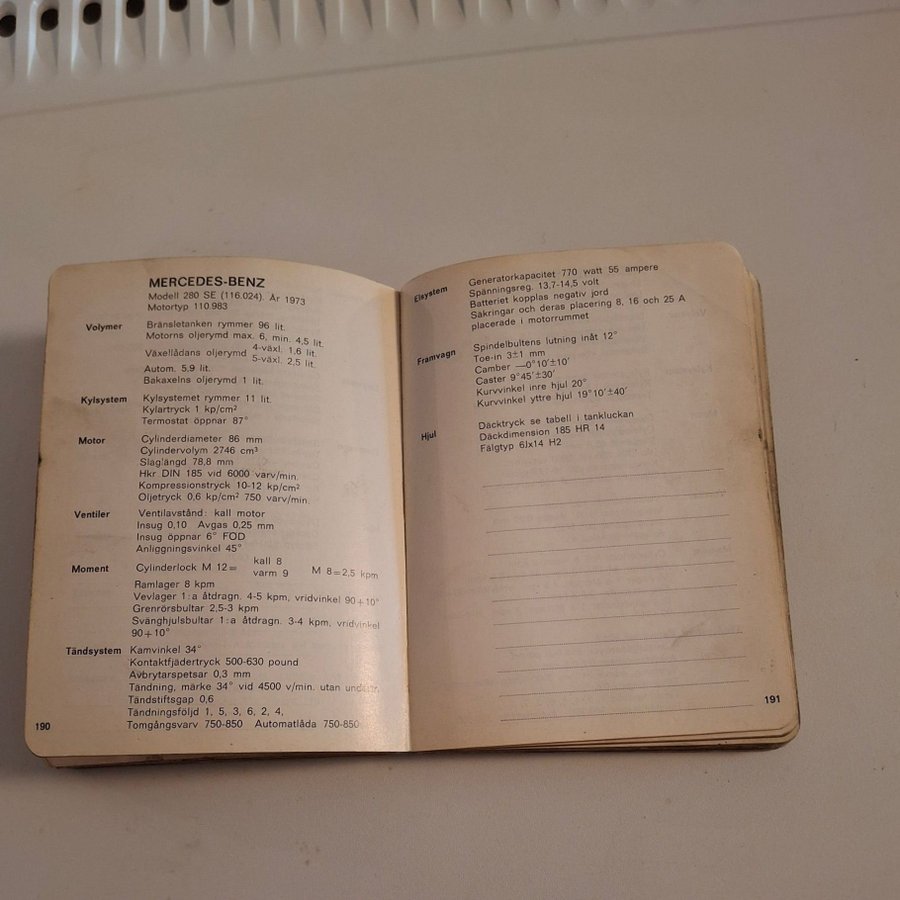 MERCEDES-BENZ
Modell 280 SE (116.024). År 1973
Motortyp 110.983
Volymer Bränsletanken rymmer 96 lit.
Motorns oljerymd max. 6, min. 4,5 lit.
Växellådans oljerymd 4-växl. 1,6 lit.
5-växl. 2,5 lit.
Autom. 5,9 lit.
Bakaxelns oljerymd 1 lit.
Kylsystem Kylsystemet rymmer 11 lit.
Kylartryck 1 kp/cm²
Termostat öppnar 87°
Motor Cylinderdiameter 86 mm
Cylindervolym 2746 cm³
Slaglängd 78,8 mm
Hkr DIN 185 vid 6000 varv/min.
Kompressionstryck 10-12 kp/cm²
Oljetryck 0,6 kp/cm² 750 varv/min.
Ventiler Ventilavstånd: kall motor
Insug 0,10 Avgas 0,25 mm
Insug öppnar 6° FÖD
Anliggningsvinkel 45°
Moment Cylinderlock M 12= kall 8
varm 9 M 8=2,5 kpm
Ramlager 8 kpm
Vevlager 1:a åtdragn. 4-5 kpm, vridvinkel 90+10°
Grenrörsbultar 2,5-3 kpm
Svänghjulsbultar 1:a åtdragn. 3-4 kpm, vridvinkel
90+10°
Tändsystem Kamvinkel 34°
Kontaktfjädertryck 500-630 pound
Avbrytarspetsar 0,3 mm
Tändning, märke 34° vid 4500 v/min. utan
Tändstiftsgap 0,6
Tändningsföljd 1, 5, 3, 6, 2, 4,
Tomgångsvarv 750-850 Automatlåda 750-850
190
Elsystem Generatorkapacitet 770 watt 55 ampere
Spänningsreg. 13,7-14,5 volt
Batteriet kopplas negativ jord
Säkringar och deras placering 8, 16 och 25 A
placerade i motorrummet
Framvagn Spindelbultens lutning inåt 12°
Toe-in 3±1 mm
Camber —0°10'±10'
Caster 9°45'±30'
Kurvvinkel inre hjul 20°
Kurvvinkel yttre hjul 19°10'±40'
Hjul Däcktryck se tabell i tankluckan
Däckdimension 185 HR 14
Fälgtyp 6Jx14 H2
191